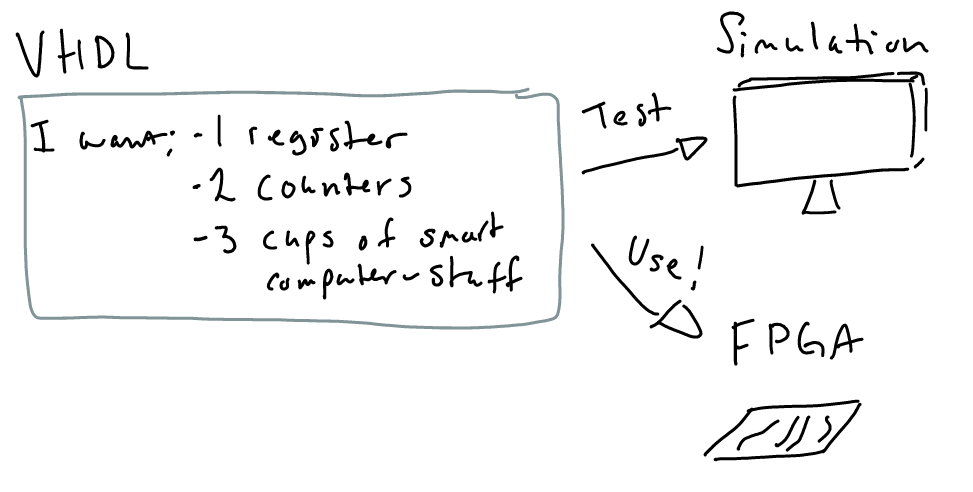 VHDL
I want: - 1 register
- 2 counters
- 3 cups of smart
computer-stuff
Test
Simulation
Use!
FPGA